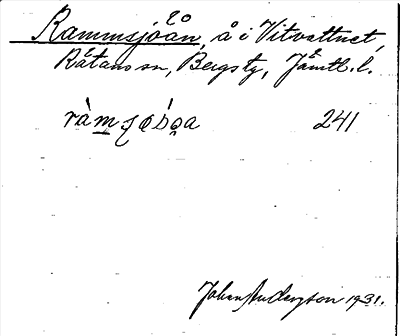 Rammsjöån, å i Vitvattnet,
Rätans sn, Bergs tg, Jämtl. l.
241
Johan Anderson 1931.